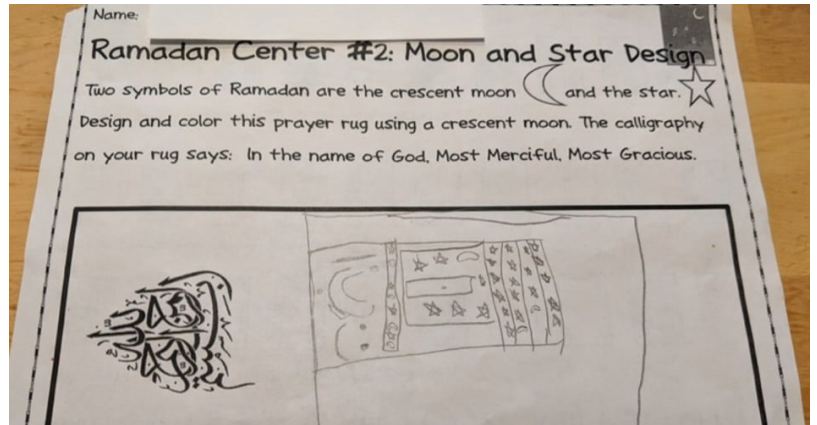 Name:
Ramadan Center #2: Moon and Star Design
Two symbols of Ramadan are the crescent moon and the star.
Design and color this prayer rug using a crescent moon. The calligraphy
on your rug says: In the name of God, Most Merciful, Most Gracious.